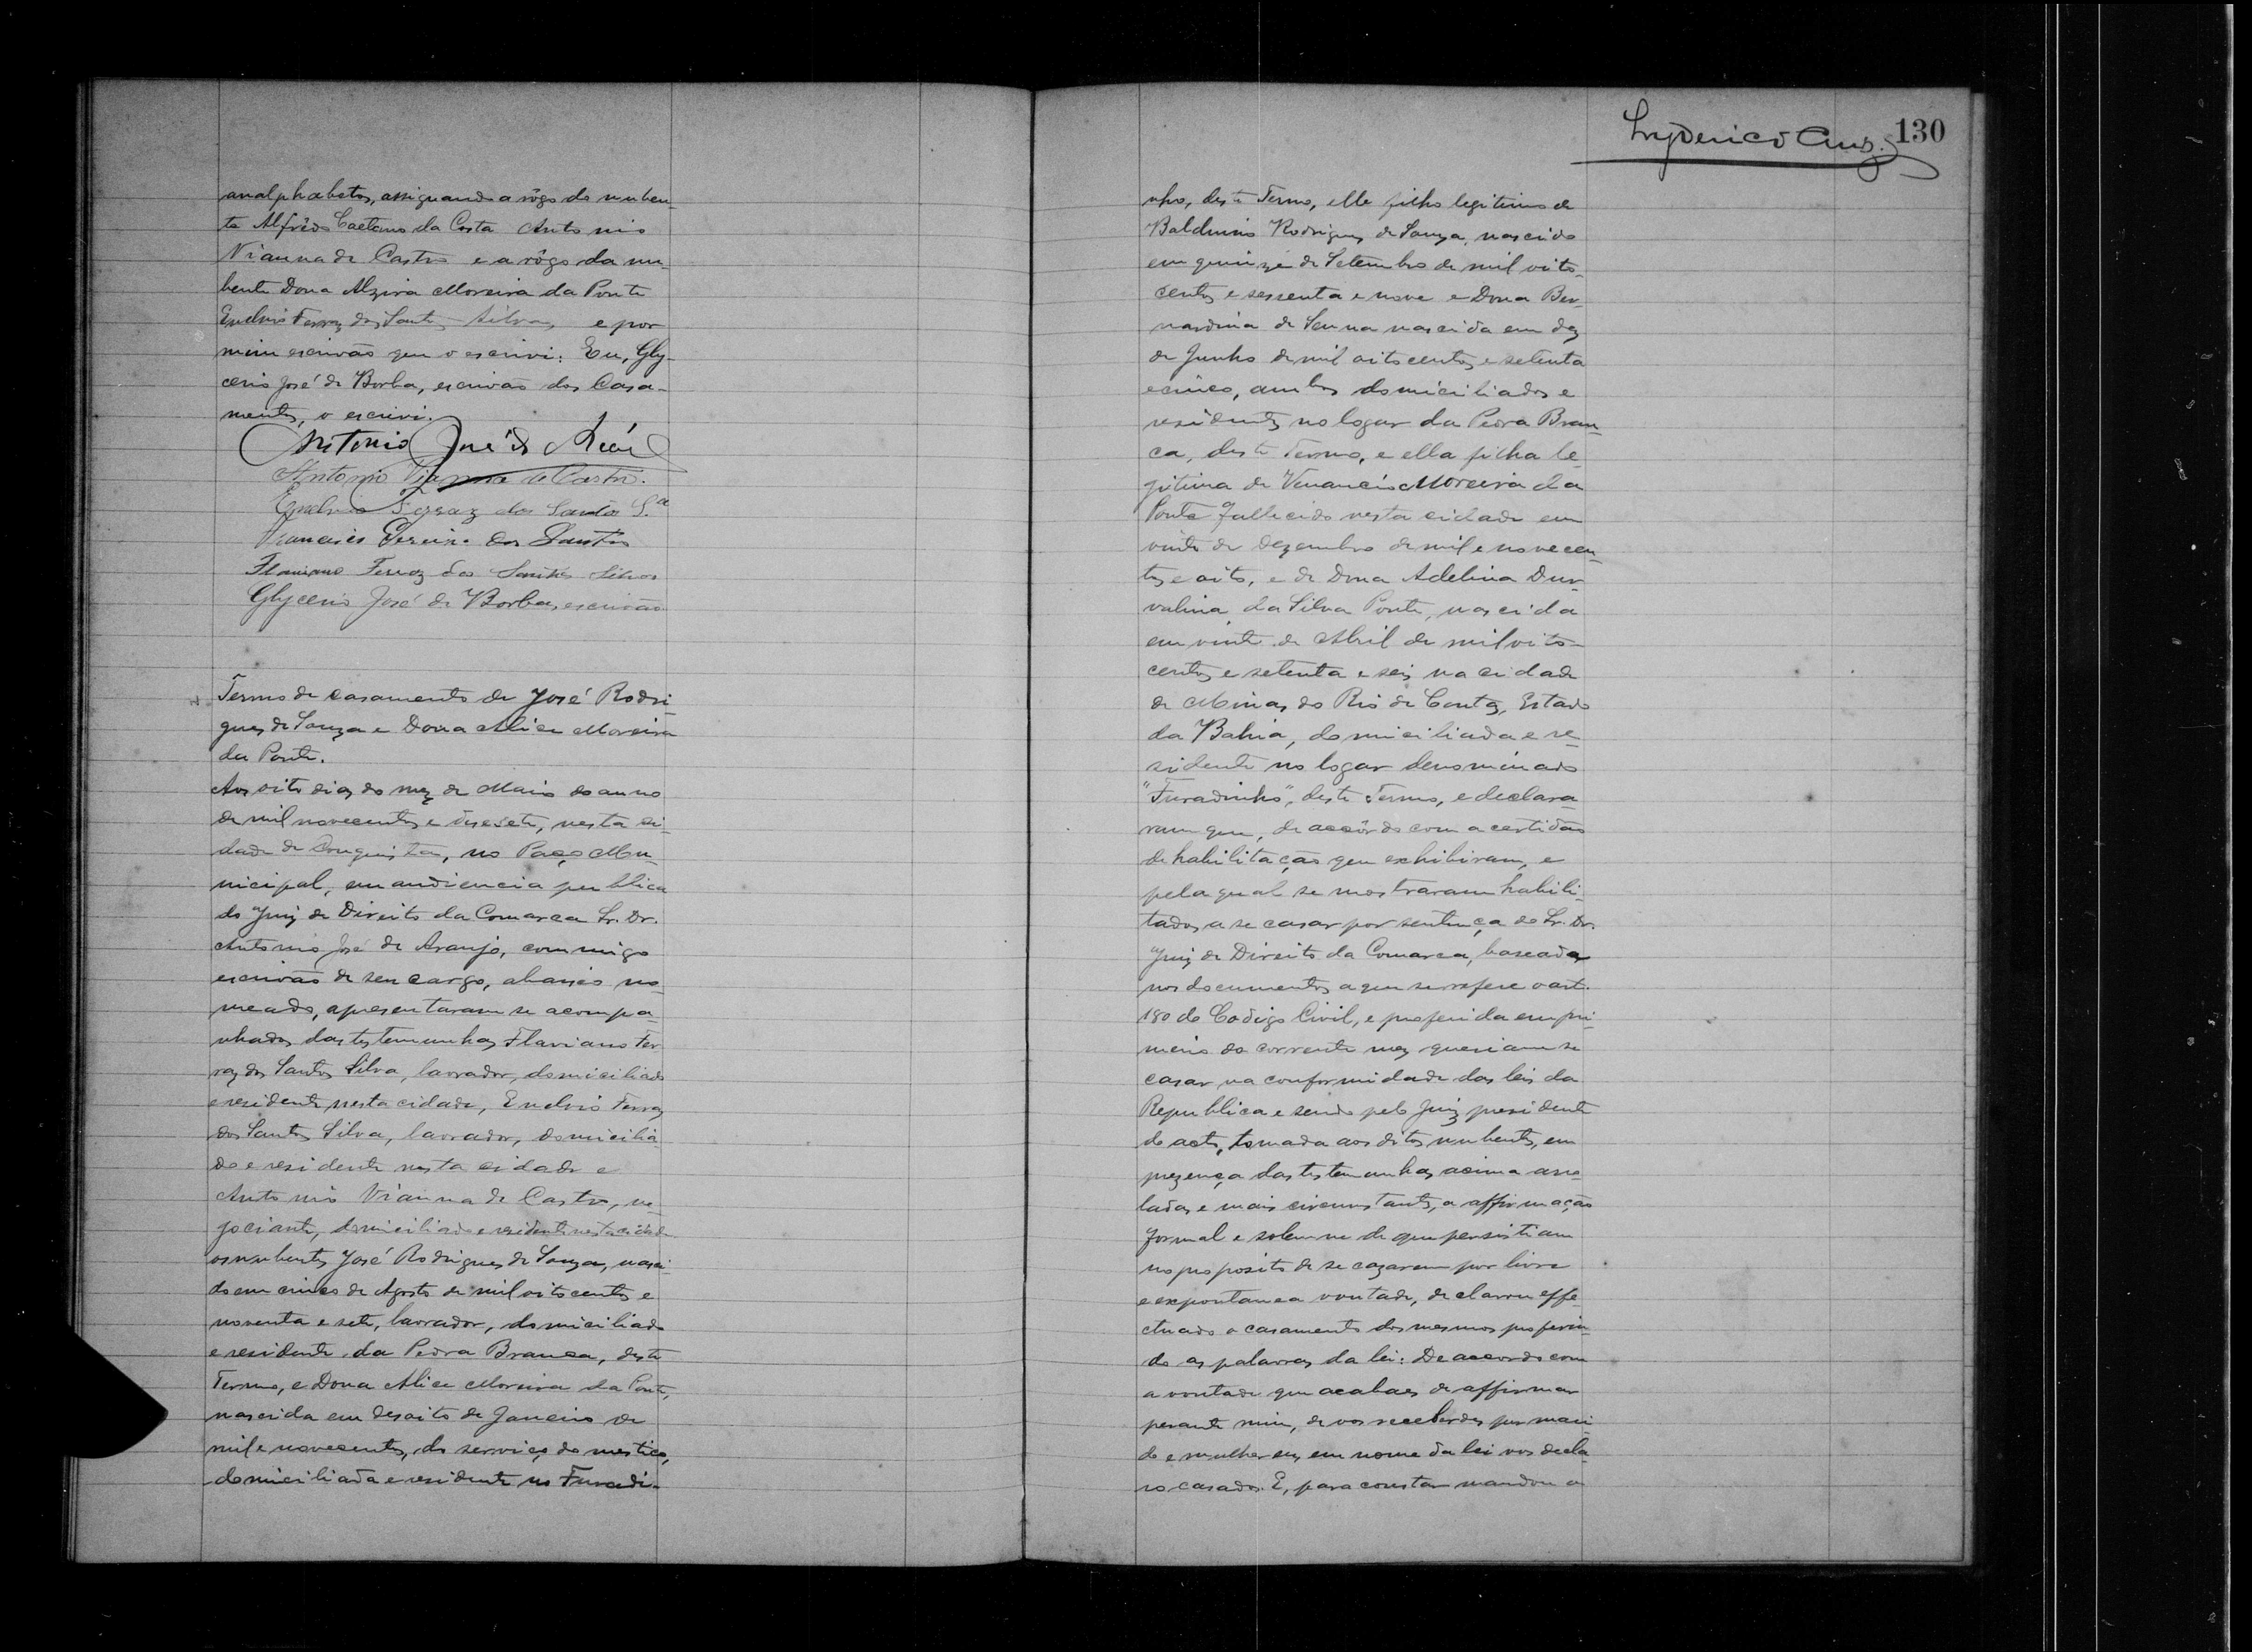 analphabetos, assignando a rôgo do nuben-
te Alfrêdo Caetano da Costa Antonio
Vianna de Castro e a rôgo da nu-
bente Dona Alzira Moreira da Ponte
Enclvio Ferraz dos Santos Silva, e por
mim escrivão que o escrivi: Eu, Gly-
cerio José de Borba, escrivão dos Casa-
mentos, o escrivi.
Antonio José de
Antonio Vianna de Castro.
Ferraz dos Santos S.a
Francisco Pereira dos Santos
Flaviano Ferraz dos Santos Silva
Glycerio José de Borba, escrivão
Termo de casamento de José Rodri-
gues de Souza e Dona Alice Moreira
da Ponte.
Aos oito dias do mez de Maio do anno
de mil novecentos e desesete, nesta ci-
dade de Conquista, no Paço Mu-
nicipal, em audiencia publica
do Juiz de Direito da Comarca Sr. Dr.
Antonio José de Araujo, commigo
escrivão de seu cargo, abaixo no-
meado, apresentaram se acompa-
nhados das testemunhas Flaviano Fer-
raz dos Santos Silva, lavrador, domiciliado
e residente nesta cidade, Ferraz
dos Santos Silva, lavrador, domicilia-
do e residente nesta cidade e
Antonio Vianna de Castro, ne-
gociante, domiciliado e residente nesta cidade
os nubentes José Rodrigues de Souza, nasci-
do em cinco de Agosto de mil oitocentos e
noventa e sete, lavrador, domiciliado
e residente da Pedra Branca, deste
Termo, e Dona Alice Moreira da Ponte,
nascida em desoito de Janeiro de
mil e novecentos, do serviço domestico,
domiciliada e residente no Furadi-
Lyderico Cruz. 130
nho, deste Termo, elle filho legitimo de
Balduino Rodrigues de Souza, nascido
em quinze de Setembro de mil oito-
centos e sessenta e nove e Dona Ber-
nardina de Senna nascida em dez
de Junho de mil oitocentos e setenta
e cinco, ambos domiciliados e
residentes no logar da Pedra Bran-
ca, deste Termo, e ella filha le-
gitima de Venancio Moreira da
Ponte fallecido nesta cidade em
vinte de Dezembro de mil e novecen-
tos e oito, e de Dona Adelina Dur-
valina da Silva Ponte, nascida
em vinte de Abril de mil oito-
centos e setenta e seis na cidade
de Minas do Rio de Contas, Estado
da Bahia, domiciliada e re-
sidente no logar denominado
"Furadinho", deste Termo, e declara-
ram que, de accôrdo com a certidão
de habilitação que exhibiram, e
pela qual se mostraram habili-
tados a se casar por sentença do Sr. Dr.
Juiz de Direito da Comarca, baseada
nos documentos a que se refere o art.
180 do Codigo Civil, e proferida em pri-
meiro do corrente mez queriam se
casar na conformidade das leis da
Republica e sendo pelo Juiz presidente
do acto, tomada aos ditos nubentes, em
prezença das testemunhas acima arro-
ladas e mais circunstantes, a affirmação
formal e solemne de que persistiam
no proposito de se cazarem por livre
e expontanea vontade, declarou effe-
ctuado o casamento dos mesmos proferin-
do as palavras da lei: De accordo com
a vontade que acabaes de affirmar
perante mim, de vos receberdes por mari-
do e mulher eu, em nome da lei vos decla-
ro casados. E, para constar mandou o